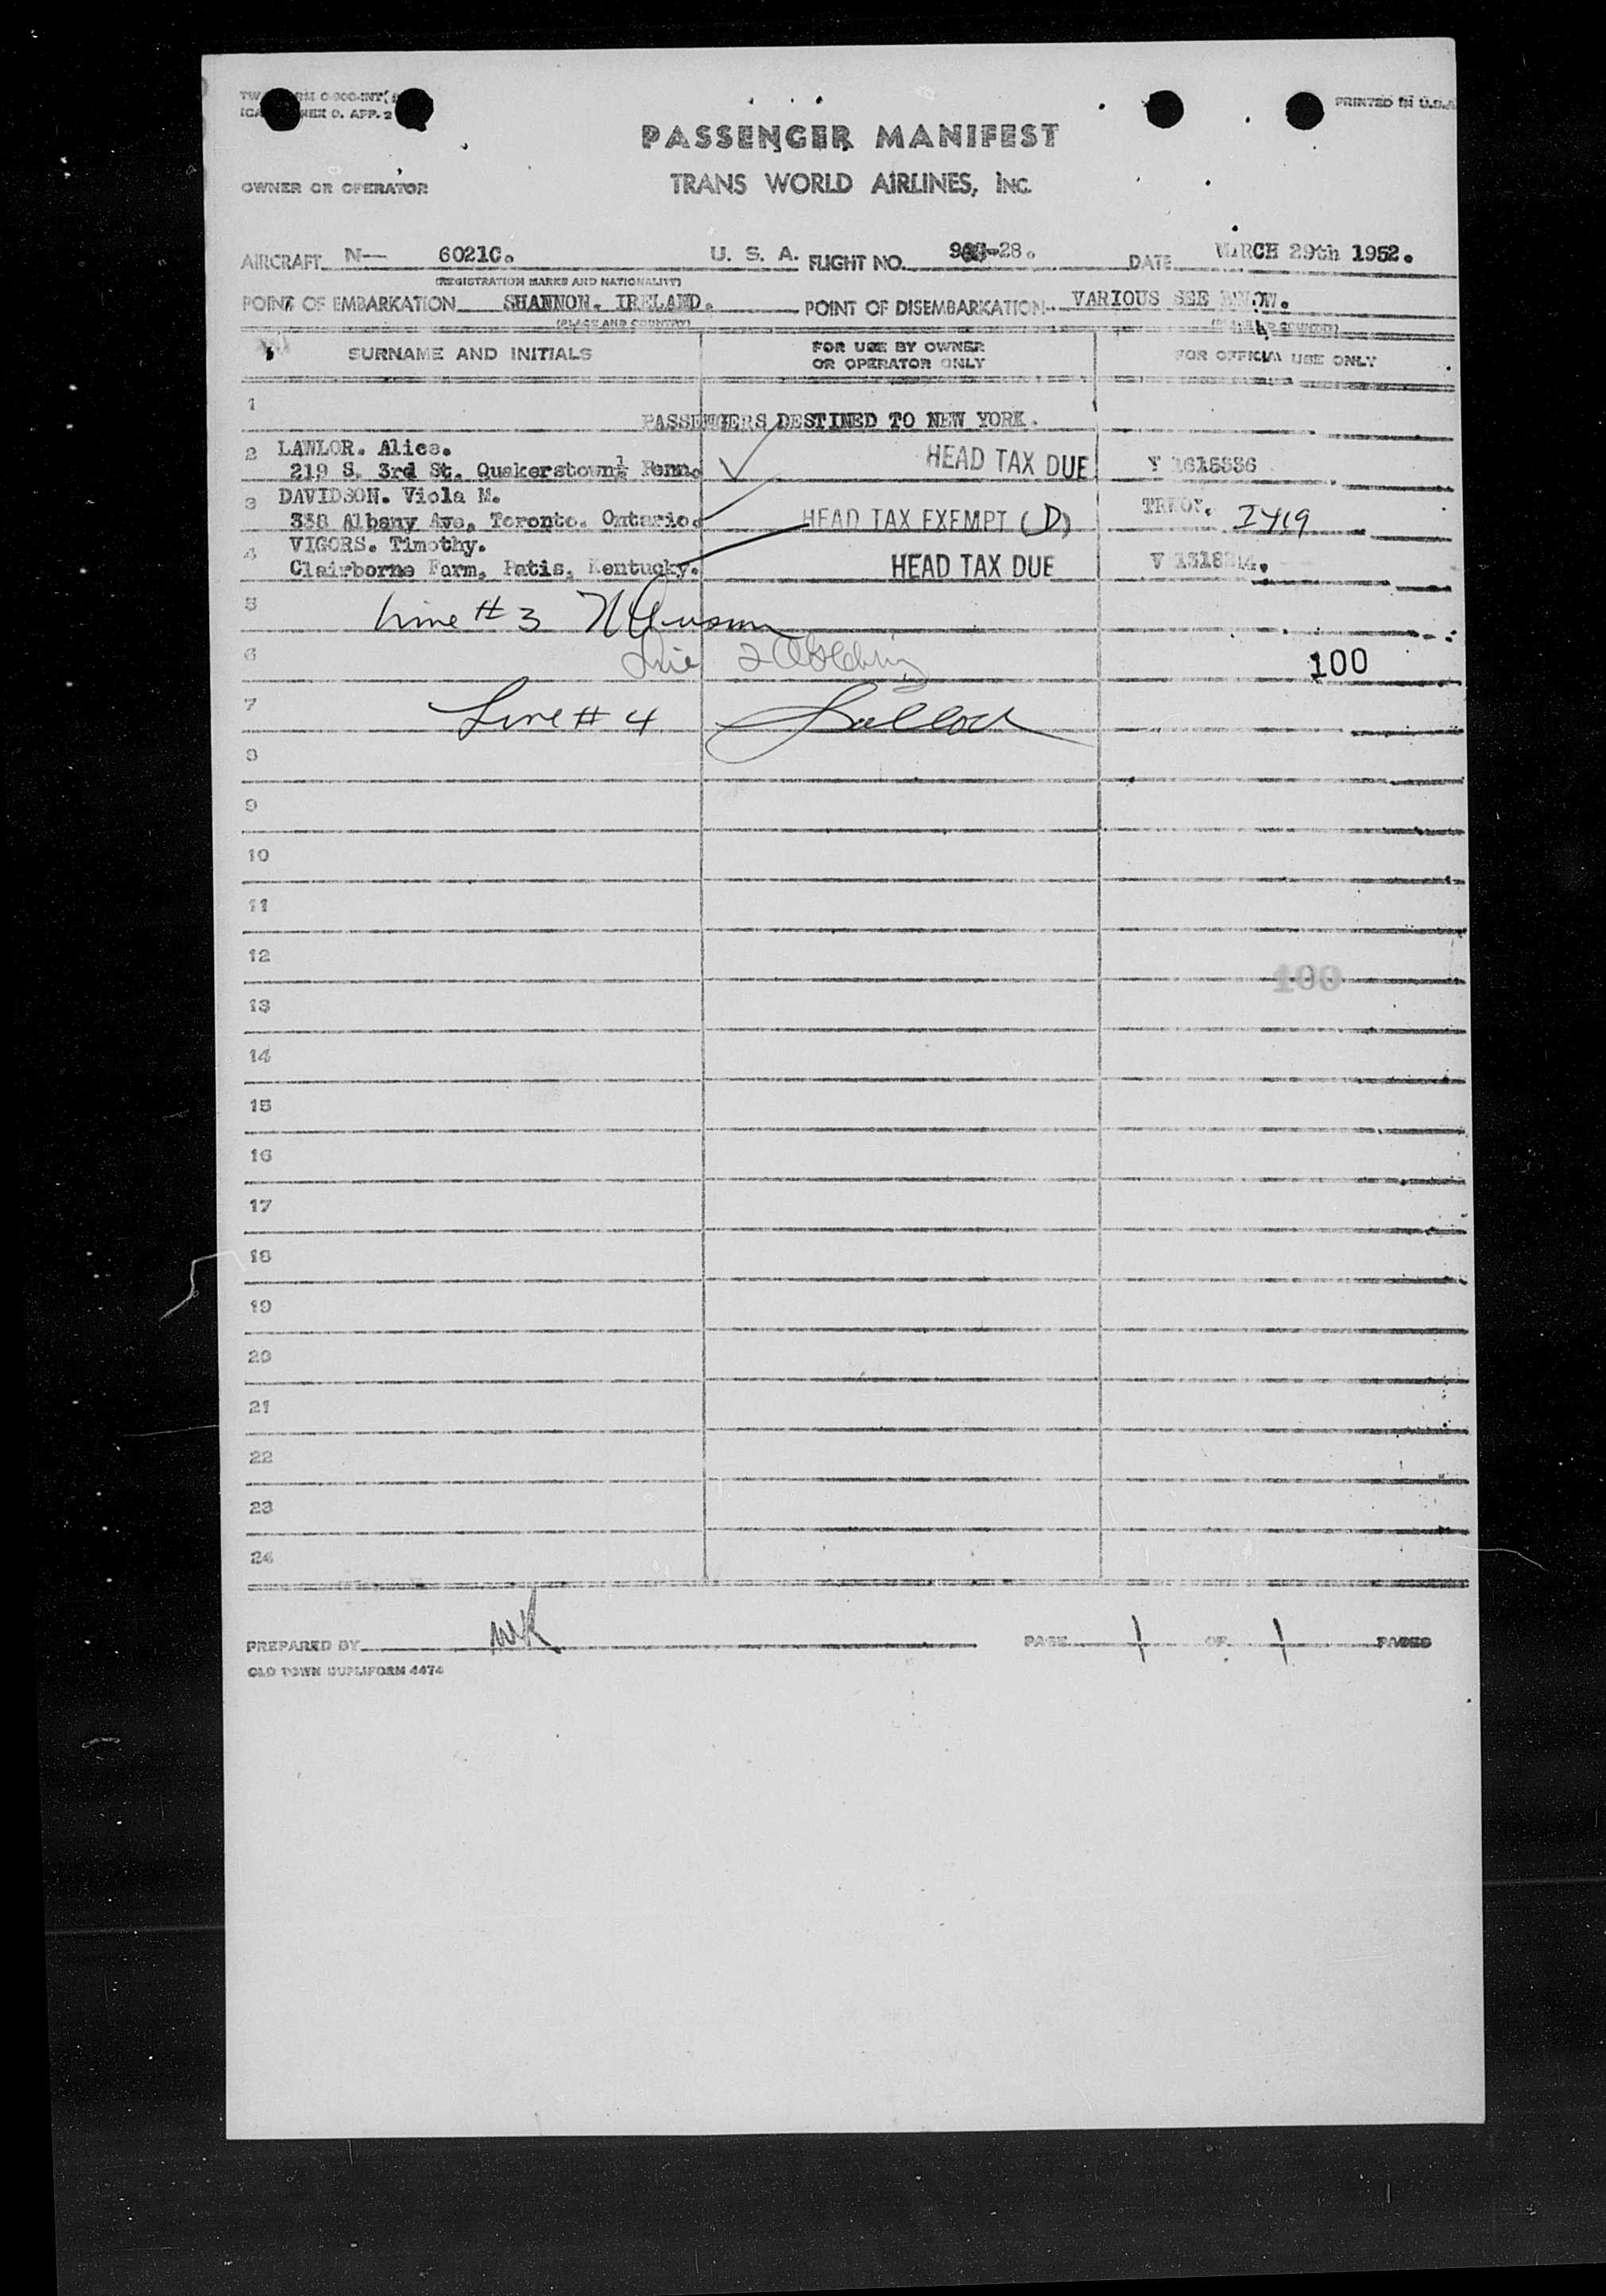 PRINTED IN U.S.A.
PASSENGER MANIFEST
OWNER OR OPERATOR TRANS WORLD AIRLINES, INC.
AIRCRAFT N— 6021C. U. S. A. FLIGHT NO. -28. DATE MARCH 29th 1952.
(REGISTRATION MARKS AND NATIONALITY)
POINT OF EMBARKATION SHANNON. IRELAND. POINT OF DISEMBARKATION VARIOUS SEE
(PLACE AND COUNTRY) (PLACE AND COUNTRY)
SURNAME AND INITIALS FOR USE BY OWNER OR OPERATOR ONLY FOR OFFICIAL USE ONLY
1 PASSENGERS DESTINED TO NEW YORK.
2 LAWLOR. Alice. HEAD TAX DUE
219 S. 3rd St. Quakerstown Penn.
3 DAVIDSON. Viola M.
338 Albany Ave, Toronto. Ontario. HEAD TAX EXEMPT (D)
4 VIGORS. Timothy.
Clairborne Farm, Patis, Kentucky. HEAD TAX DUE
5 Line # 3
6 Line 2 100
7 Line # 4
8
9
10
11
12
100
13
14
15
16
17
18
19
20
21
22
23
24
PREPARED BY PAGE 1 OF 1 PAGES
OLD TOWN DUPLIFORM 4474